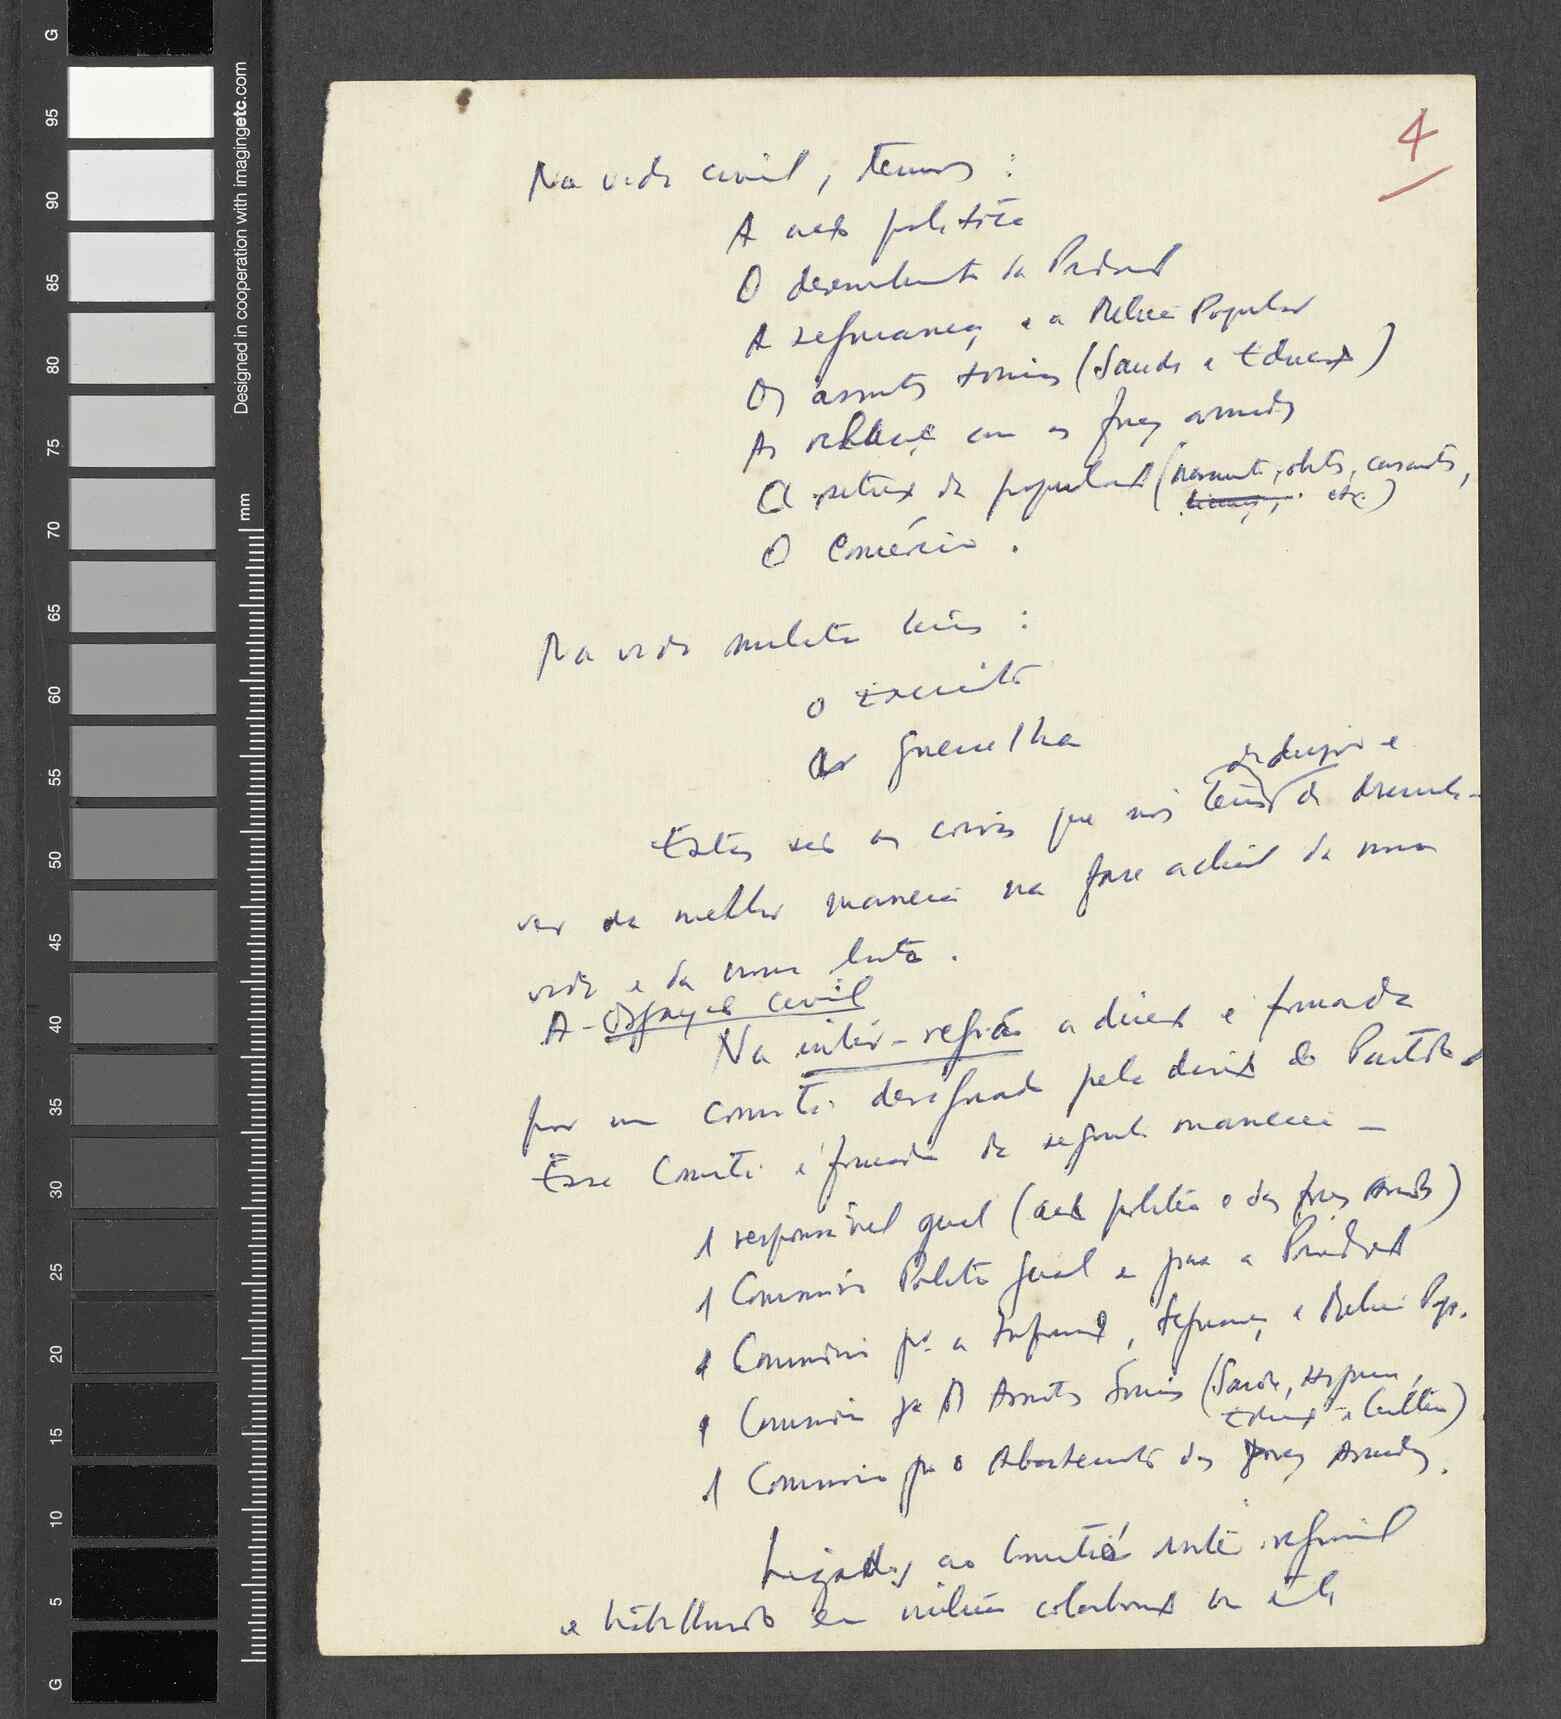 4
Na vida civil, temos :
A acção política
O desenvolvimento da Produção
A segurança e a Milícia Popular
Os assuntos sociais (Saude e Educação)
As relações com as forças armadas
A situação da população (nascimentos, obitos, casamentos,
etc.)
O Comércio .
Na vida militar temos :
o exercito
A guerrilha
de dirigir e
Estas são as coisas que nós temos de desenvol-
ver da melhor maneira na fase actual da nossa
vida e da nossa luta .
A - Organização civil
Na inter-região a direcção é formada
por um comité designado pela direcção do Partido
Esse Comité é formado da seguinte maneira —
1 responsável geral (acção política e das forças Armadas)
1 Comissário Politico geral e para a Produção
1 Comissário pª a Informação, Segurança e Milícia Pop.
1 Comissário pa os Assuntos Sociais (Saúde, Higiene,
Educação e Cultura)
1 Comissário pa o Abastecimento das Forças Armadas.
Ligados ao Comité inter-regional
e trabalhando em intima colaboração com êle
G
95
90
85
80
75
70
65
60
55
50
45
40
35
30
25
20
15
10
5
G
Designed in cooperation with imagingetc.com
mm